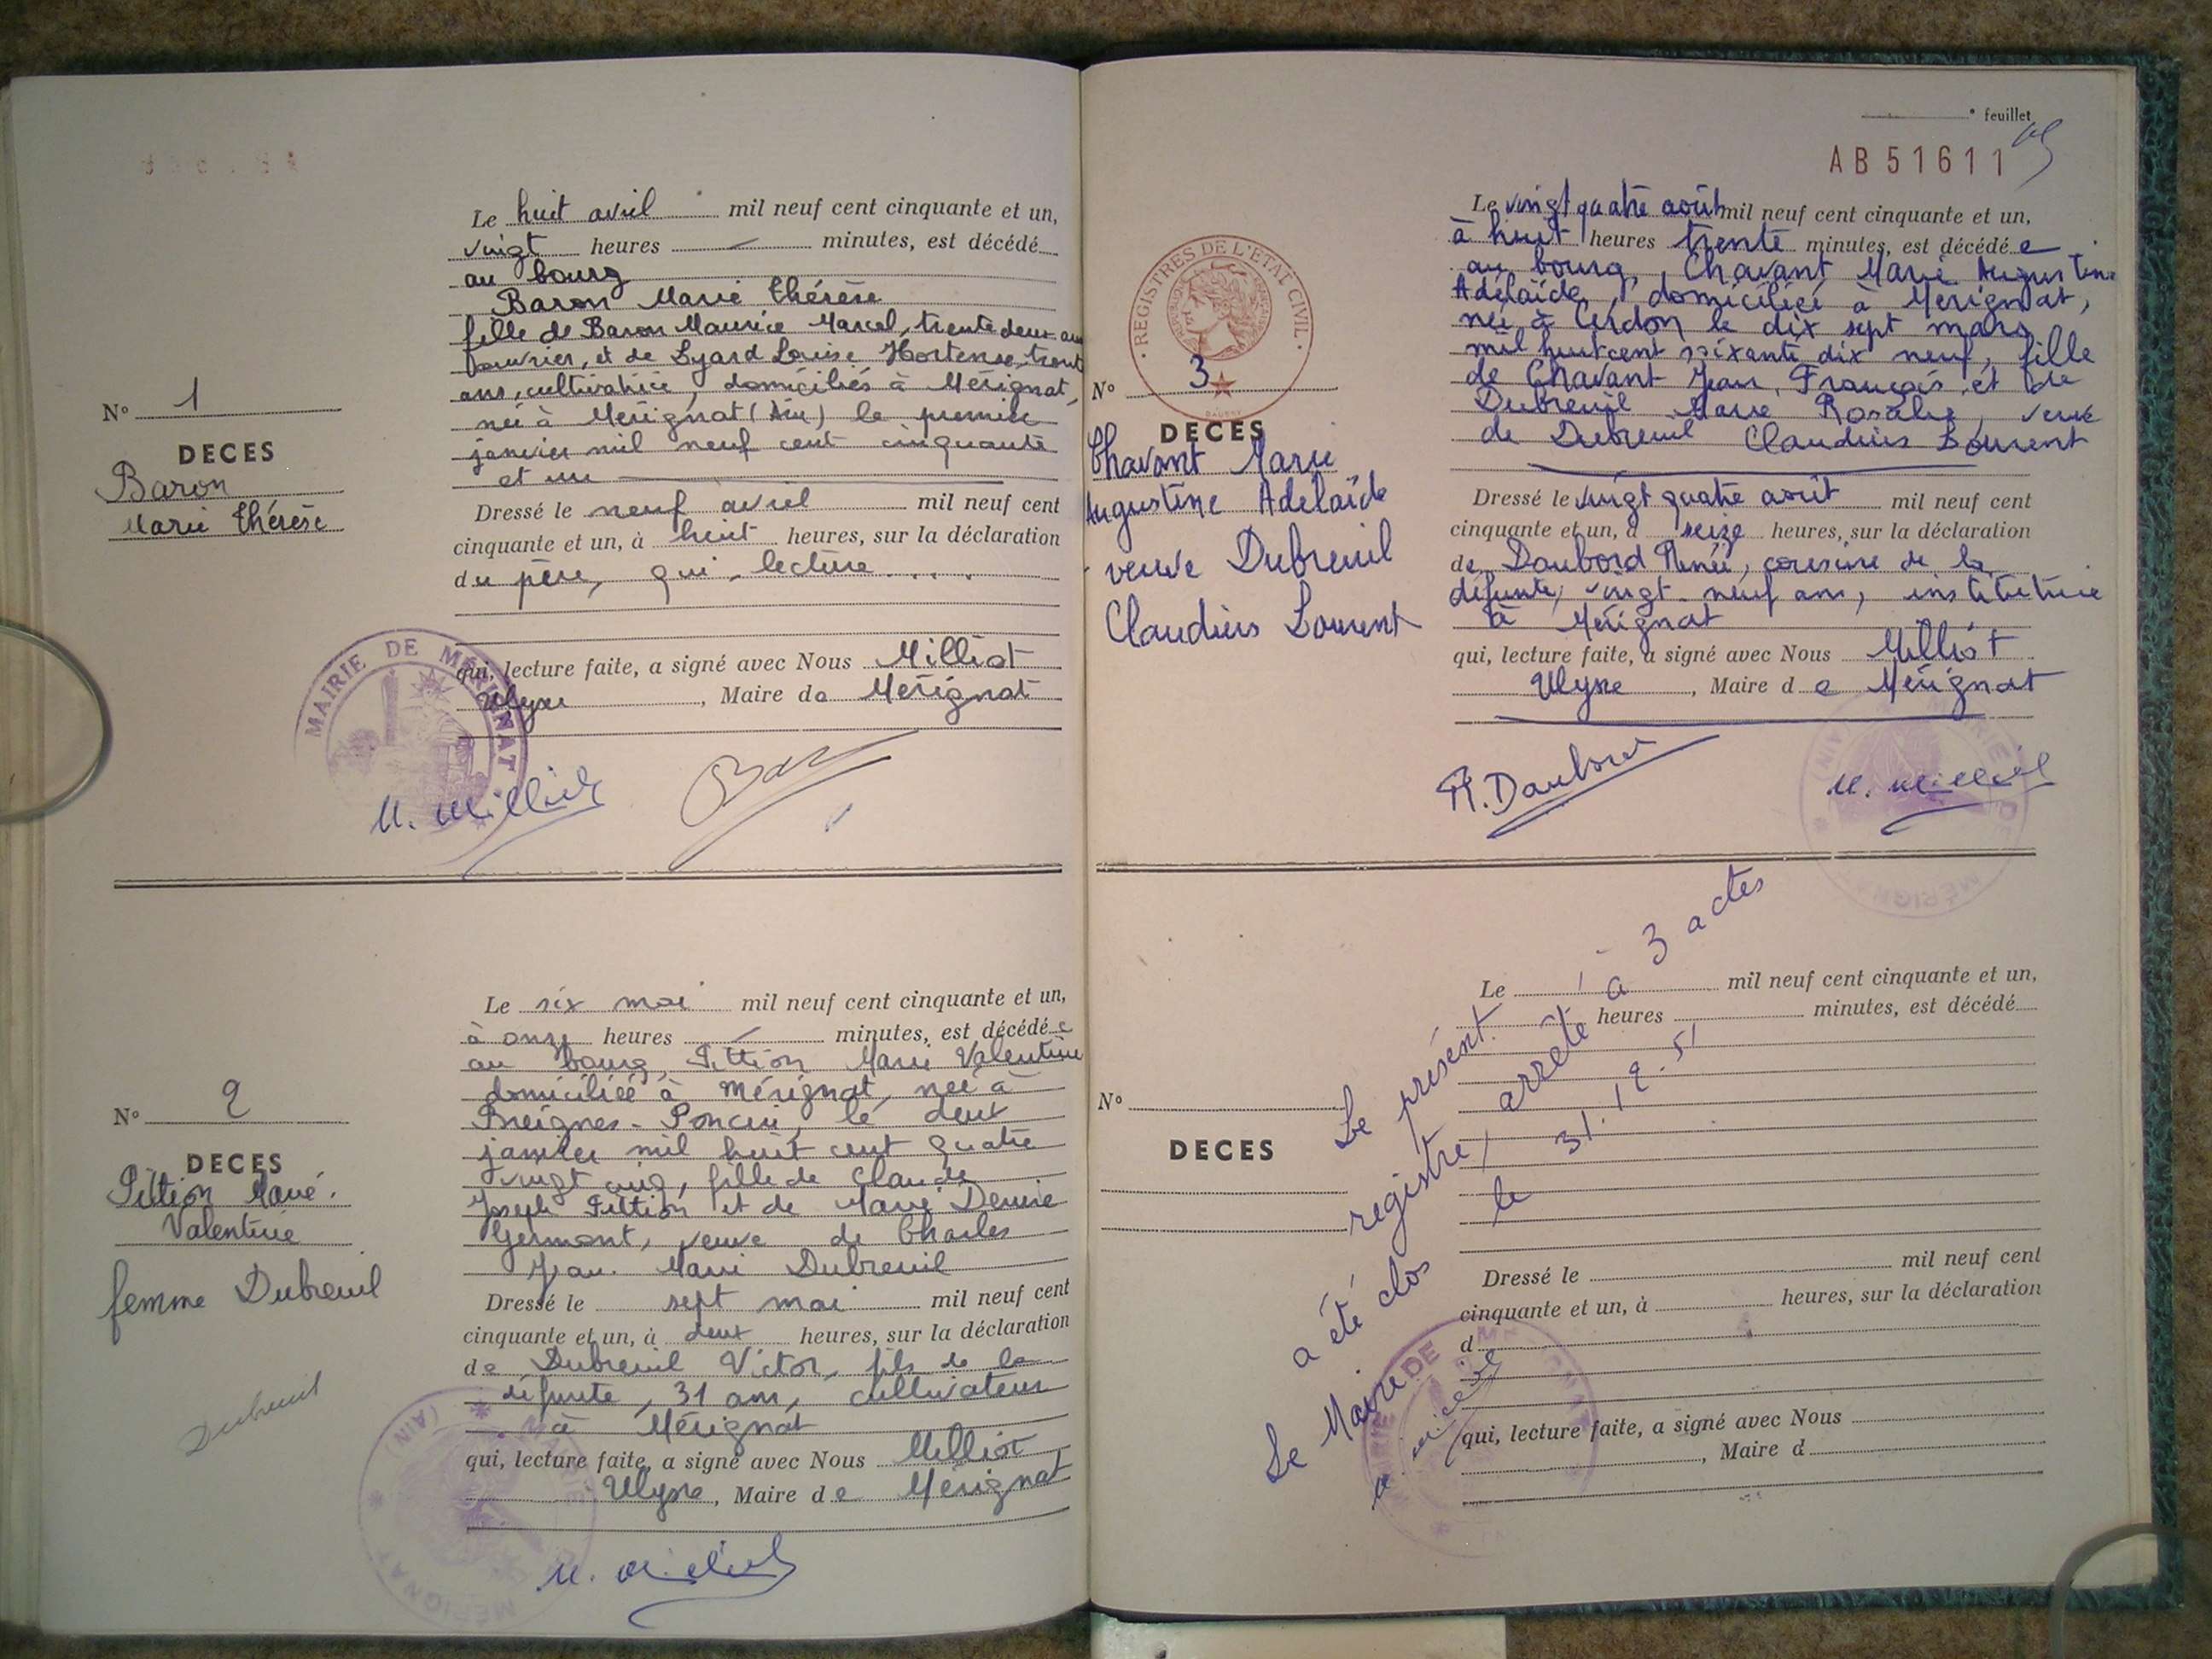 N° 1
DECES
Baron
Marie Thérèse
Le huit avril mil neuf cent cinquante et un,
vingt heures — minutes, est décédé
au bourg
Baron Marie Thérèse
fille de Baron Maurice Marcel, trente deux ans
ouvrier, et de Lyard Louise Hortense, trent
ans, cultivatrice, domiciliés à Mérignat,
née à Mérignat (Ain) le premier
janvier mil neuf cent cinquante
et un
Dressé le neuf avril mil neuf cent
cinquante et un, à huit heures, sur la déclaration
du père, qui, lecture . . . .
qui, lecture faite, a signé avec Nous Milliat
Ulysse, Maire de Mérignat
MAIRIE DE MÉRIGNAT
U. Milliat
N° 2
DECES
Pittion Marie
Valentine
femme Dubreuil
Dubreuil
Le six mai mil neuf cent cinquante et un,
à onze heures — minutes, est décédé e
au bourg, Pittion Marie Valentine
domiciliée à Mérignat, née à
Breignes-Poncin, le deux
janvier mil huit cent quatre
vingt cinq, fille de Claude
Joseph Pittion et de Marie Denise
Germont, veuve de Charles
Jean-Marie Dubreuil
Dressé le sept mai mil neuf cent
cinquante et un, à deux heures, sur la déclaration
de Dubreuil Victor, fils de la
défunte, 31 ans, cultivateur
à Mérignat
qui, lecture faite, a signé avec Nous Milliat
Ulysse, Maire de Mérignat
MÉRIGNAT (AIN)
° feuillet
AB 51611
REGISTRES DE L'ETAT CIVIL
N° 3
DECES
Chavant Marie
Augustine Adelaïde
veuve Dubreuil
Claudius Laurent
Le vingt quatre août mil neuf cent cinquante et un,
à huit heures trente minutes, est décédé e
au bourg, Chavant Marie Augustine
Adélaïde, domiciliée à Mérignat,
née à Cerdon le dix sept mars
mil huit cent soixante dix neuf, fille
de Chavant Jean, François et de
Dubreuil Marie Rosalie, veuve
de Dubreuil Claudius Laurent
Dressé le vingt quatre août mil neuf cent
cinquante et un, à seize heures, sur la déclaration
de Daubord Renée, cousine de la
défunte, vingt-neuf ans, institutrice
à Mérignat
qui, lecture faite, a signé avec Nous Milliat
Ulysse, Maire de Mérignat
R. Daubord
U. Milliat
N°
DECES
Le mil neuf cent cinquante et un,
heures minutes, est décédé
Dressé le mil neuf cent
cinquante et un, à heures, sur la déclaration
d
qui, lecture faite, a signé avec Nous
, Maire d
Le présent
registre, arrêté à 3 actes
a été clos le 31.12.51
Le Maire